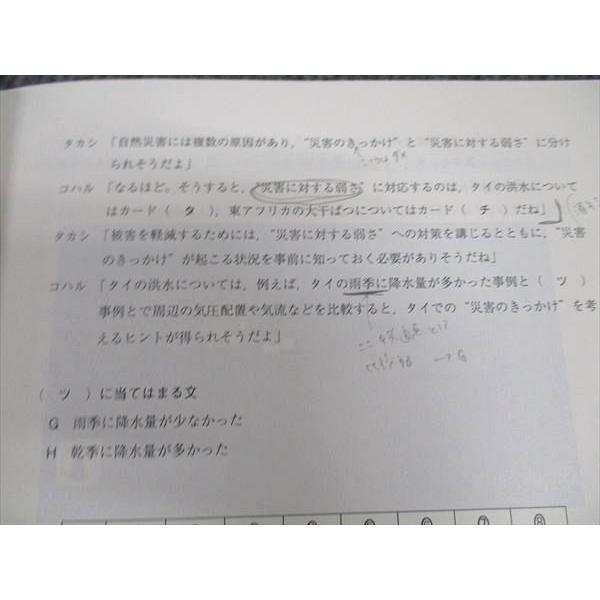 タカシ 「自然災害には複数の原因があり，“災害のきっかけ”と“災害に対する弱さ”に分け
られそうだよ」
コハル 「なるほど。そうすると，“災害に対する弱さ”に対応するのは，タイの洪水について
はカード（ タ ），東アフリカの大干ばつについてはカード（ チ ）だね」
タカシ 「被害を軽減するためには，“災害に対する弱さ”への対策を講じるとともに，“災害
のきっかけ”が起こる状況を事前に知っておく必要がありそうだね」
コハル 「タイの洪水については，例えば，タイの雨季に降水量が多かった事例と（ ツ ）
事例とで周辺の気圧配置や気流などを比較すると，タイでの“災害のきっかけ”を考
えるヒントが得られそうだよ」
（ ツ ）に当てはまる文
G 雨季に降水量が少なかった
H 乾季に降水量が多かった
⑥ ⑦ ⑧